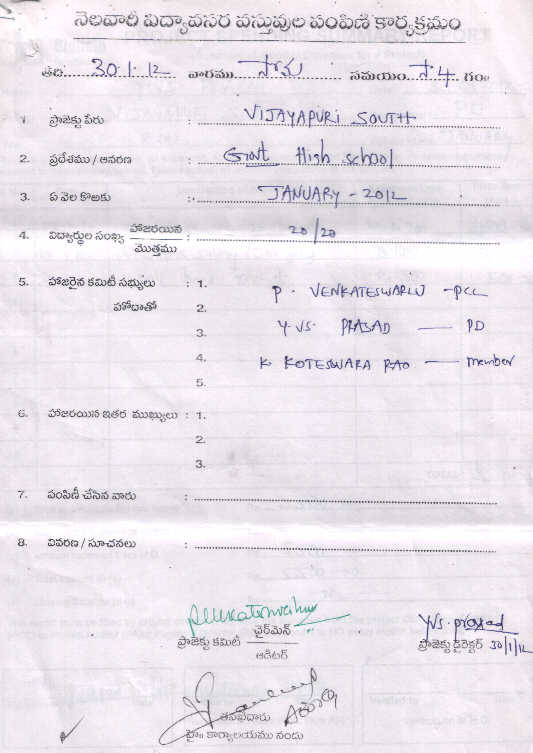 నెలవారీ విద్యావసర వస్తువుల పంపిణీ కార్యక్రమం
తేది: 30.1.12 వారము సోమ సమయం సా 4 గం॥
1. ప్రాజెక్టు పేరు : VIJAYAPURI SOUTH
2. ప్రదేశము / ఆవరణ : Govt High school
3. ఏ నెల కొఱకు : JANUARY - 2012
4. విద్యార్థుల సంఖ్య హాజరయిన / మొత్తము : 20/20
5. హాజరైన కమిటీ సభ్యులు : 1. P. VENKATESWARLU - PCC
హోదాతో 2.
3. Y.VS. PRASAD — PD
4. K KOTESWARA RAO — member
5.
6. హాజరయిన ఇతర ముఖ్యులు : 1.
2.
3.
7. పంపిణీ చేసిన వారు :
8. వివరణ / సూచనలు :
ప్రాజెక్టు కమిటీ ఛైర్మెన్ / ఆడిటర్
Y.VS. prasad
ప్రాజెక్టు డైరెక్టర్ 30/1/12
తనిఖీదారు
హై॥ కార్యాలయము నందు